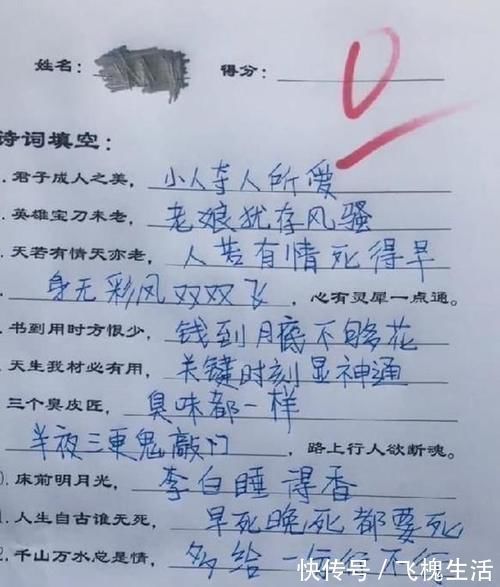 姓名： 得分： 0
诗词填空：
.君子成人之美，小人夺人所爱
.英雄宝刀未老，老娘犹存风骚
.天若有情天亦老，人若有情死得早
.身无彩凤双双飞，心有灵犀一点通。
.书到用时方恨少，钱到月底不够花
.天生我材必有用，关键时刻显神通
.三个臭皮匠，臭味都一样
半夜三更鬼敲门，路上行人欲断魂。
).床前明月光，李白睡得香
1.人生自古谁无死，早死晚死都要死
2.千山万水总是情，多给一
快传号／飞槐生活